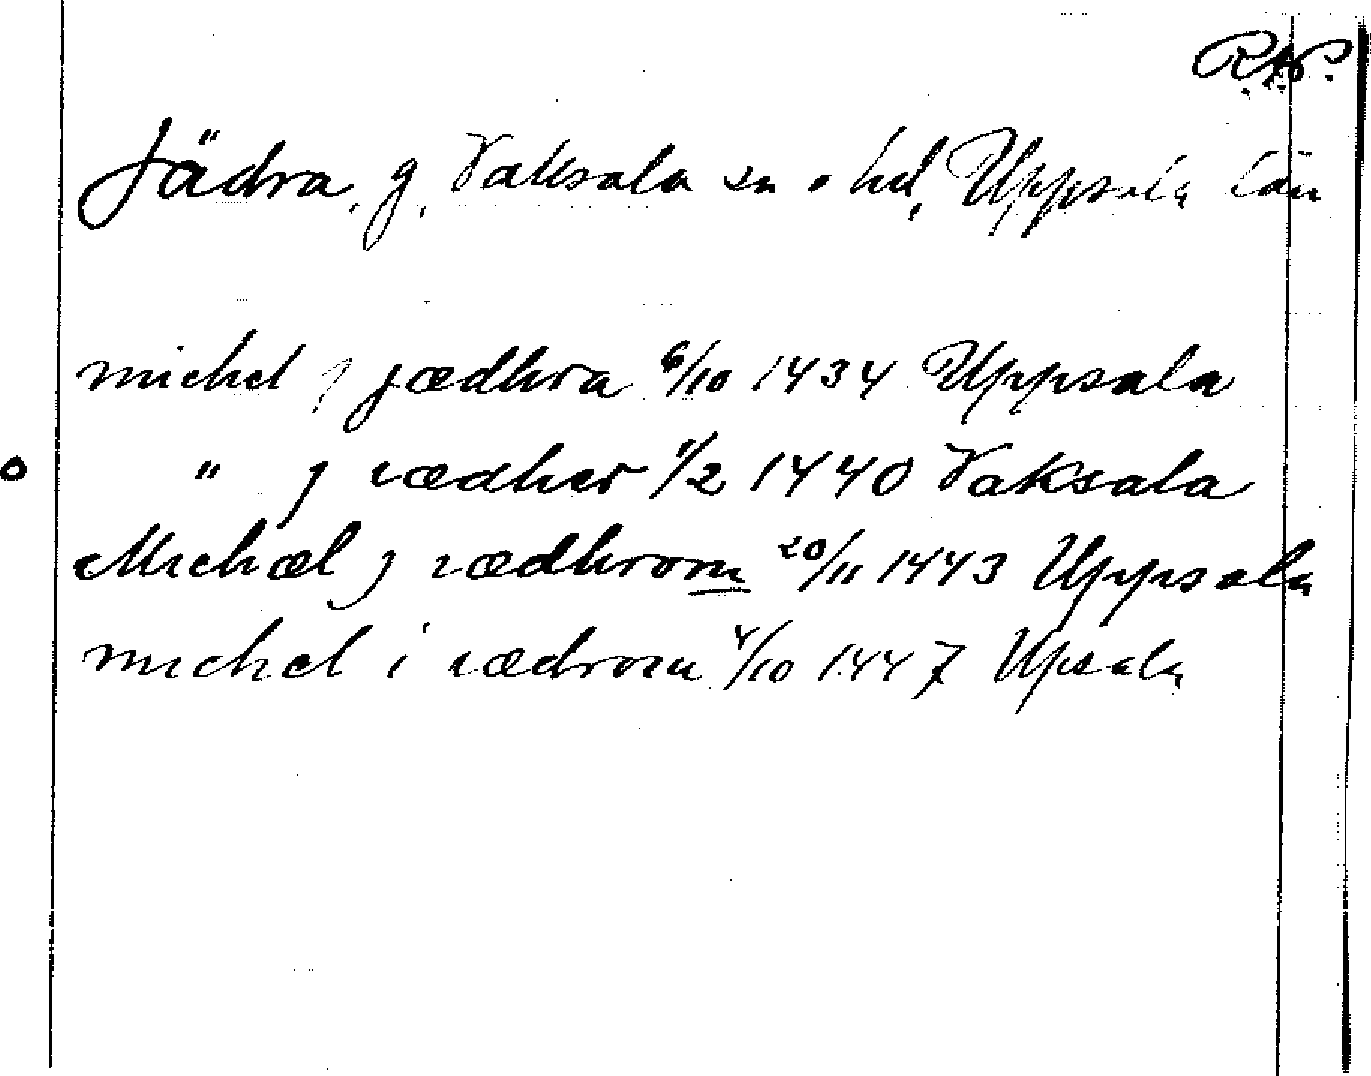 R.A.P.
Jädra, g, Vaksala sn o hd, Uppsala län
michel j jædhra 6/10 1434 Uppsala
" j iædher 1/2 1440 Vaksala
Michæl j iædhrom 20/11 1443 Uppsala
michel i iædrom 4/10 1447 Upsala